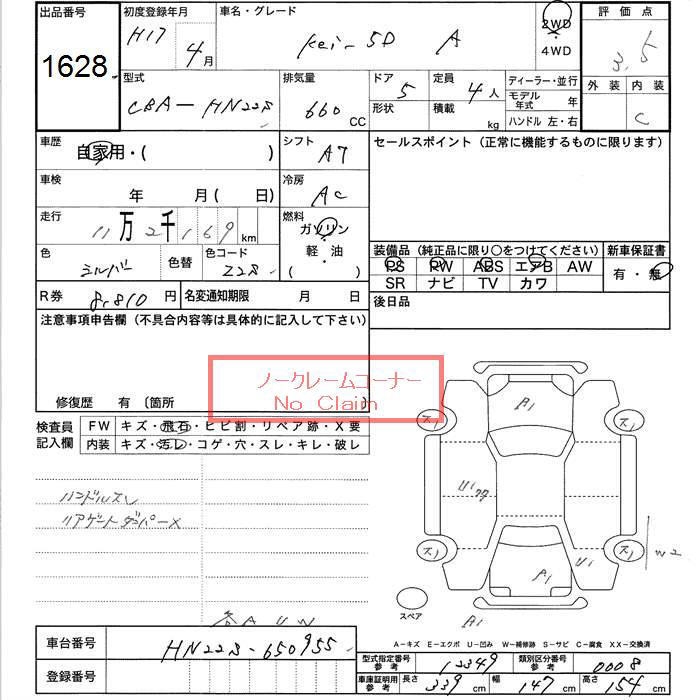 出品番号 初度登録年月 車名・グレード 2WD 評価点
1628 H17 4月 Kei-5D A 4WD 3.5
型式 排気量 ドア 定員 ディーラー・並行 外装 内装
CBA-HN22S 660 CC 5 4人 モデル年式 年 C
形状 積載 kg ハンドル 左・右
車歴 自家用・( ) シフト AT セールスポイント (正常に機能するものに限ります)
車検 年 月 ( 日) 冷房 AC
走行 11万2千169km 燃料 ガソリン
軽・油
( )
色 シルバ 色替 色コード Z2S
装備品 (純正品に限り○をつけてください) 新車保証書
PS PW ABS エアB AW 有・無
SR ナビ TV カワ
R券 8,810 円 名変通知期限 月 日 後日品
注意事項申告欄 (不具合内容等は具体的に記入して下さい)
ノークレームコーナー
No Claim
修復歴 有 〔箇所
検査員記入欄 FW キズ・飛石・ヒビ割・リペア跡・X要
内装 キズ・汚レ・コゲ・穴・スレ・キレ・破レ
ハンドルスレ
リアゲートダンパーX
A1
ス1 ス1
U1
ス1 ス1
U1 W2
A1
スペア A1
A-キズ E-エクボ U-凹み W-補修跡 S-サビ C-腐食 XX-交換済
車台番号 HN22S-650955
登録番号
型式指定番号 参考 12349 類別区分番号 参考 0008
車庫証明用 参考 長さ 339cm 幅 147cm 高さ 154cm